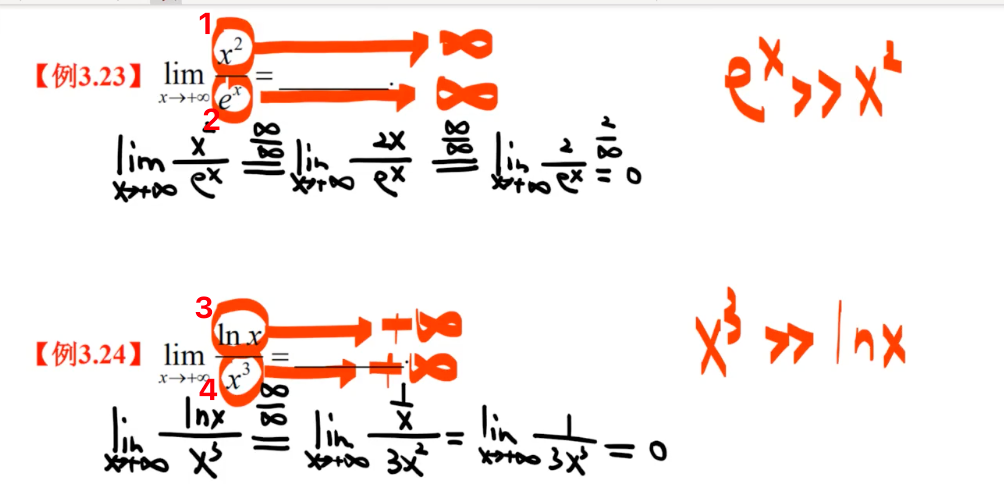 1
【例3.23】 lim x→+∞ x²/eˣ = ______. → ∞ → ∞ eˣ >> x²
2
lim x→+∞ x²/eˣ =(∞/∞) lim x→+∞ 2x/eˣ =(∞/∞) lim x→+∞ 2/eˣ =(2/∞) 0
3
【例3.24】 lim x→+∞ ln x/x³ = ______. → +∞ → +∞ x³ >> lnx
4
lim x→+∞ lnx/x³ =(∞/∞) lim x→+∞ (1/x)/3x² = lim x→+∞ 1/3x³ = 0